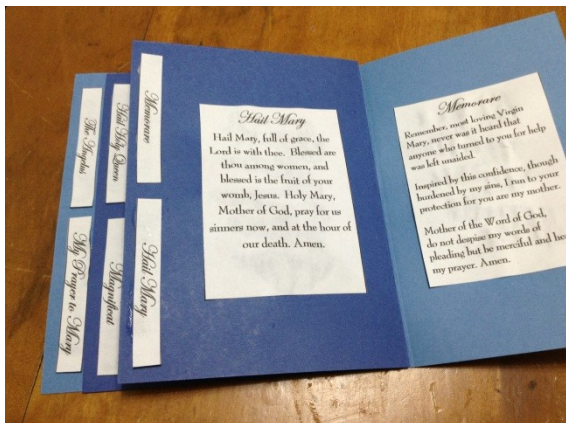 The Angelus
My Prayer to Mary
Hail Holy Queen
Magnificat
Memorare
Hail Mary
Hail Mary
Hail Mary, full of grace, the
Lord is with thee. Blessed are
thou among women, and
blessed is the fruit of your
womb, Jesus. Holy Mary,
Mother of God, pray for us
sinners now, and at the hour of
our death. Amen.
Memorare
Remember, most loving Virgin
Mary, never was it heard that
anyone who turned to you for help
was left unaided.
Inspired by this confidence, though
burdened by my sins, I run to your
protection for you are my mother.
Mother of the Word of God,
do not despise my words of
pleading but be merciful and
my prayer. Amen.